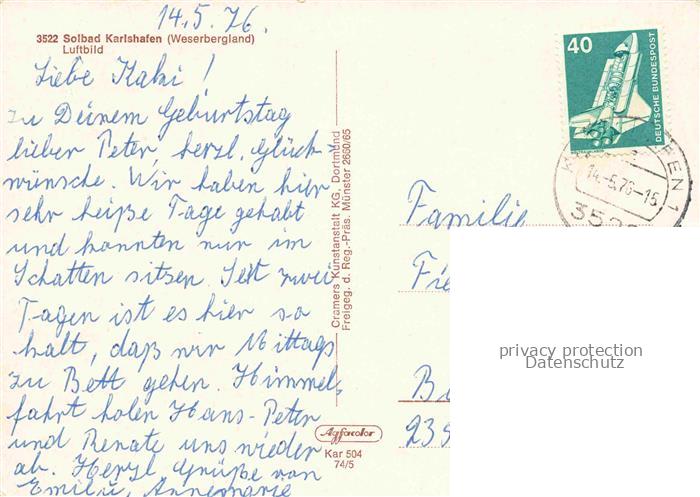 14.5.76.
3522 Solbad Karlshafen (Weserbergland)
Luftbild
Liebe Kaki!
zu Deinem Geburtstag
lieber Peter, herzl. Glück-
wünsche. Wir haben hier
sehr heiße Tage gehabt
und konnten nur im
Schatten sitzen. Seit zwei
Tagen ist es hier so
kalt, daß wir Mittags
zu Bett gehen. Himmel-
fahrt holen Hans-Peter
und Renate uns wieder
ab. Herzl. Grüße von
Emil u. Annemarie
Cramers Kunstanstalt KG, Dortmund
Freigeg. d. Reg.-Präs. Münster 2660/65
Agfacolor
Kar 504
74/5
40
DEUTSCHE BUNDESPOST
14.-5.76-15
Familie
privacy protection
Datenschutz